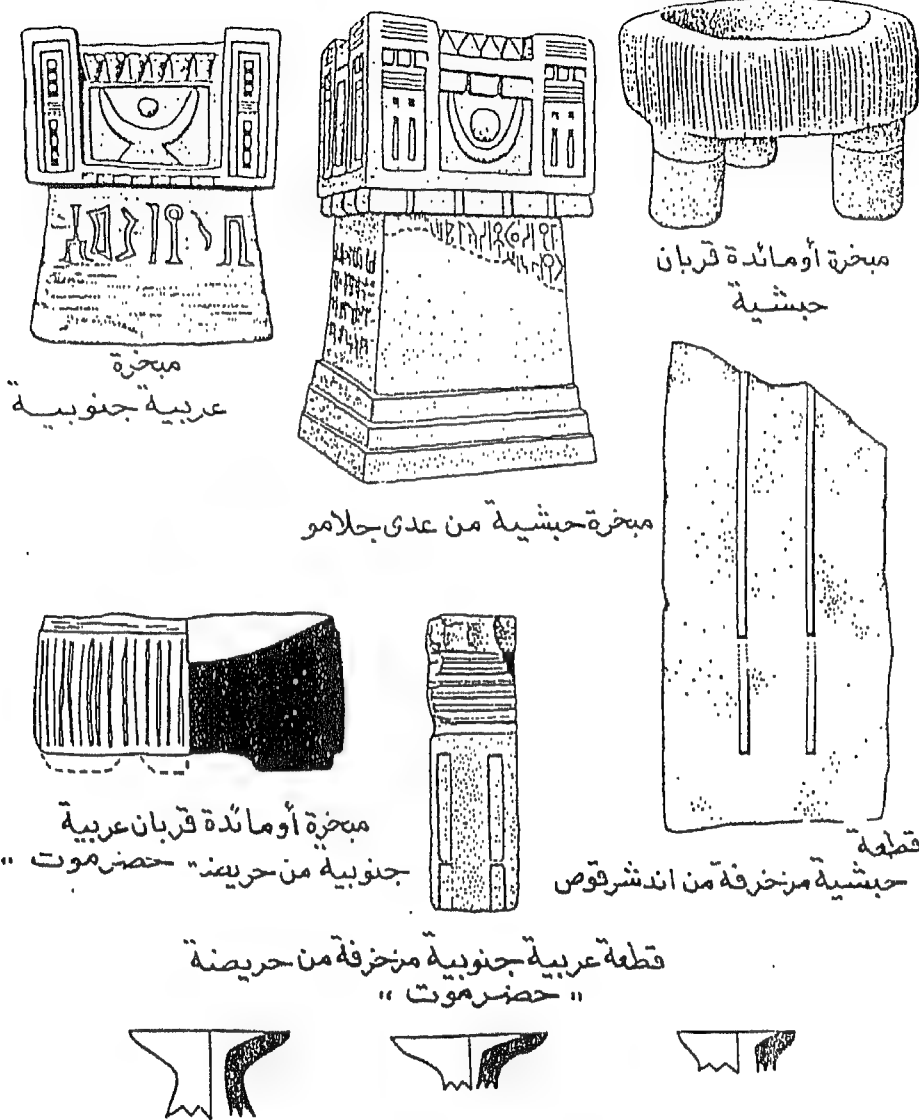 مبخرة أو مائدة قربان
حبشية
مبخرة
عربية جنوبية
مبخرة حبشية من عدى جلامو
مبخرة أو مائدة قربان عربية
جنوبية من حريضة " حضرموت "
قطعة
حبشية مزخرفة من اندشرقوص
قطعة عربية جنوبية مزخرفة من حريضة
" حضرموت "